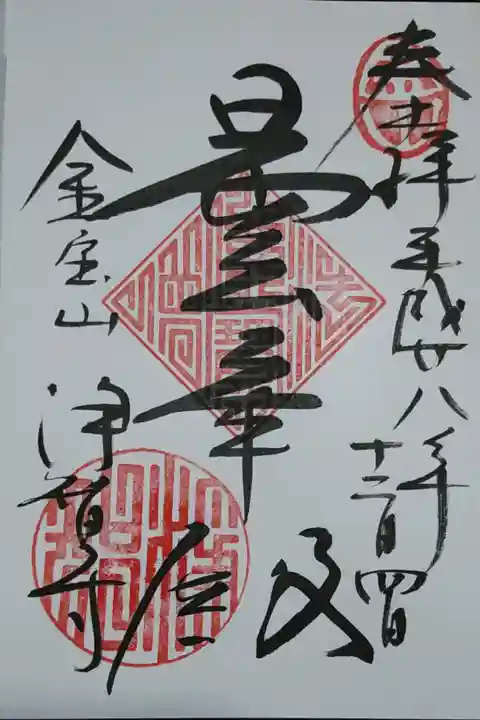 奉拝 平成廿八年
十二月四日
曇華殿
金宝山
浄智寺